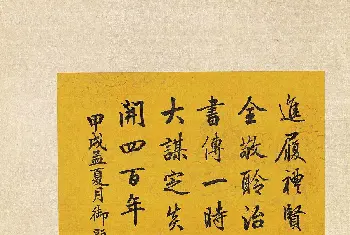 進履禮賢
全敬聆治
書傳一時
大謀定矣
開四百年
甲戌孟夏月御題